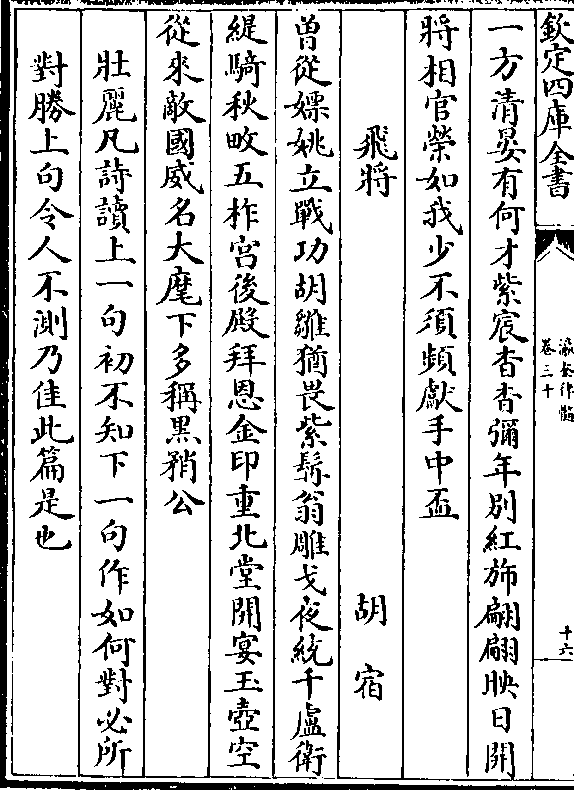 欽定四庫全書
瀛奎律髓
卷三十
十六
一方清晏有何才紫宸杳杳彌年別紅斾翩翩映日開
將相官榮如我少不須頻獻手中盃
飛將
胡宿
曽從嫖姚立戰功胡雛猶畏紫髯翁雕戈夜統千廬衛
緹騎秋畋五柞宮後殿拜恩金印重北堂開宴玉壺空
從來敵國威名大麾下多稱黒矟公
壯麗凡詩讀上一句初不知下一句作如何對必所
對勝上句令人不測乃佳此篇是也